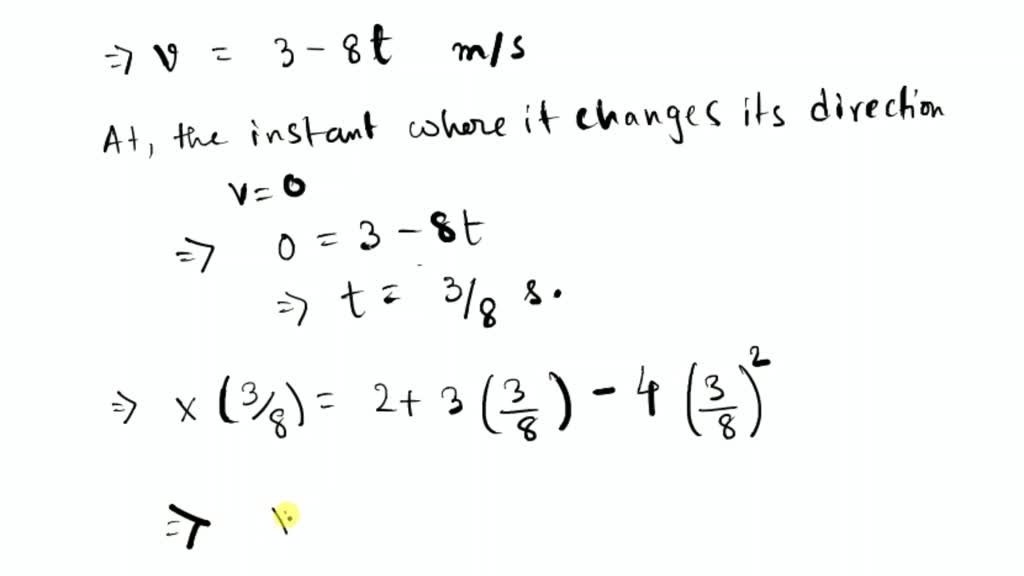 ⇒ v = 3 - 8t m/s
At, the instant where it changes its direction
v = 0
⇒ 0 = 3 - 8t
⇒ t = 3/8 s.
⇒ x (3/8) = 2 + 3 (3/8) - 4 (3/8)²
⇒